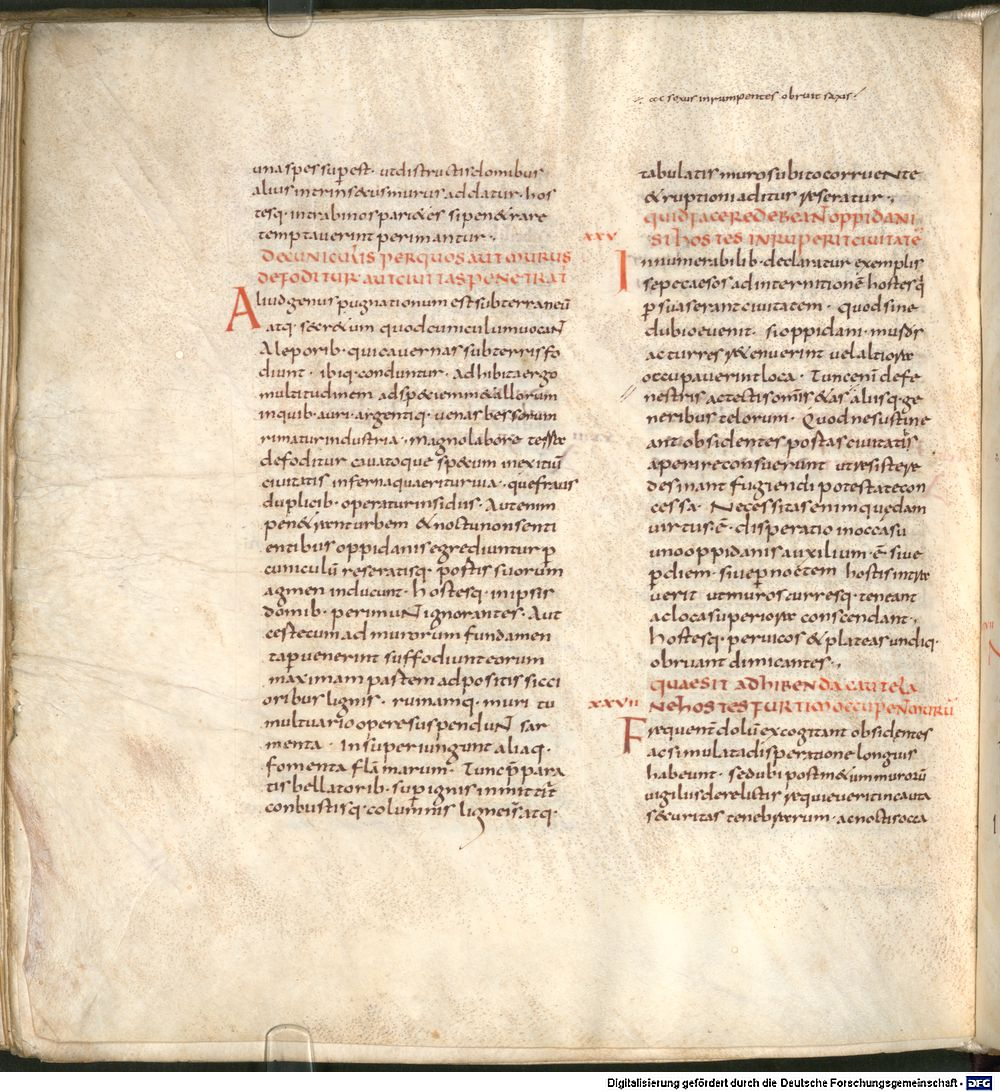 ∴ ac sexus inrumpentes obruit saxis ∴
una spes superest · ut distructis domibus
alius intrinsecus murus addatur · hos
tesq · intra binos parietes si penetrare
temptaverint perimantur ·,
DECUNICULIS PERQUOS AUT MURUS
DEFODITUR AUTCIUITAS PENETRAT
Aliud genus pugnationum est subterraneū
atq · secretum quod cuniculum uocant
A leporib · qui cavernas sub terris fo
diunt · ibiq · conduntur · Adhibita ergo
multitudinem ad speciem metallorum
in quib · auri · argentiq · venas bessorum
rimatur industria · magno labore terrae
defoditur cauatoque specum inexitiū
civitatis inferna quaeritur via · que fraus
duplicib · operatur insidiis · Aut enim
penetrant urbem & noctu non senti
entibus oppidanis egrediuntur p
cuniculū reseratisq · portis suorum
agmen inducunt · hostesq · in ipsis
domib · perimunt ignorantes · Aut
certe cum ad murorum fundamen
ta pervenerint suffodiunt eorum
maximam partem adpositis sicci
oribus lignis · ruinamq · muri tu
multuario opere suspendunt sar
menta · Insuper iungunt aliaq ·
fomenta flāmarum · Tunc p̄para
tis bellatorib · sup ignis inmittit̄
conbustisq · columnis ligneis atq ·
tabulatis muro subito corruente
& ruptioni aditur reseratur ·,
QUID FACERE DEBEANT OPPIDANI
XXV SI HOSTES INRUPERIT CIUITATĒ
Innumerabilib · declaratur exemplis
sepe caesos ad internitionē hostes q
p suaserant civitatem · Quod sine
dubio evenit · si oppidani · muros
ac turres retenuerint vel altiora
occupaverint loca · Tunc enī defe
nestris ac tectis omīs aetas aliisq · ge
neribus telorum · Quod ne sustine
ant obsidentes portas civitatis
aperire consuerunt ut resistere
desinant fugiendi potestate con
cessa · Necessitas enim quedam
virtus · ē · disperatio in occasu
uno oppidanis auxilium · ē sive
p diem · sive p noctem hostis intra
verit ut muros turresq · teneant
ac loca superiora conscendant ·,
hostesq · per vicos & plateas undiq ·
obruant dimicantes ·,
QUAE SIT ADHIBENDA CAUTELA
XXVII NE HOSTES FURTIM OCCUPENT MURŪ
Frequenter dolū excogitant obsidentes
ac simulata disperatione longius
habeunt · sed ubi post metum murorū
vigiliis derelictis requieverit incauta
securitas tenebrarum · ac noctis occa